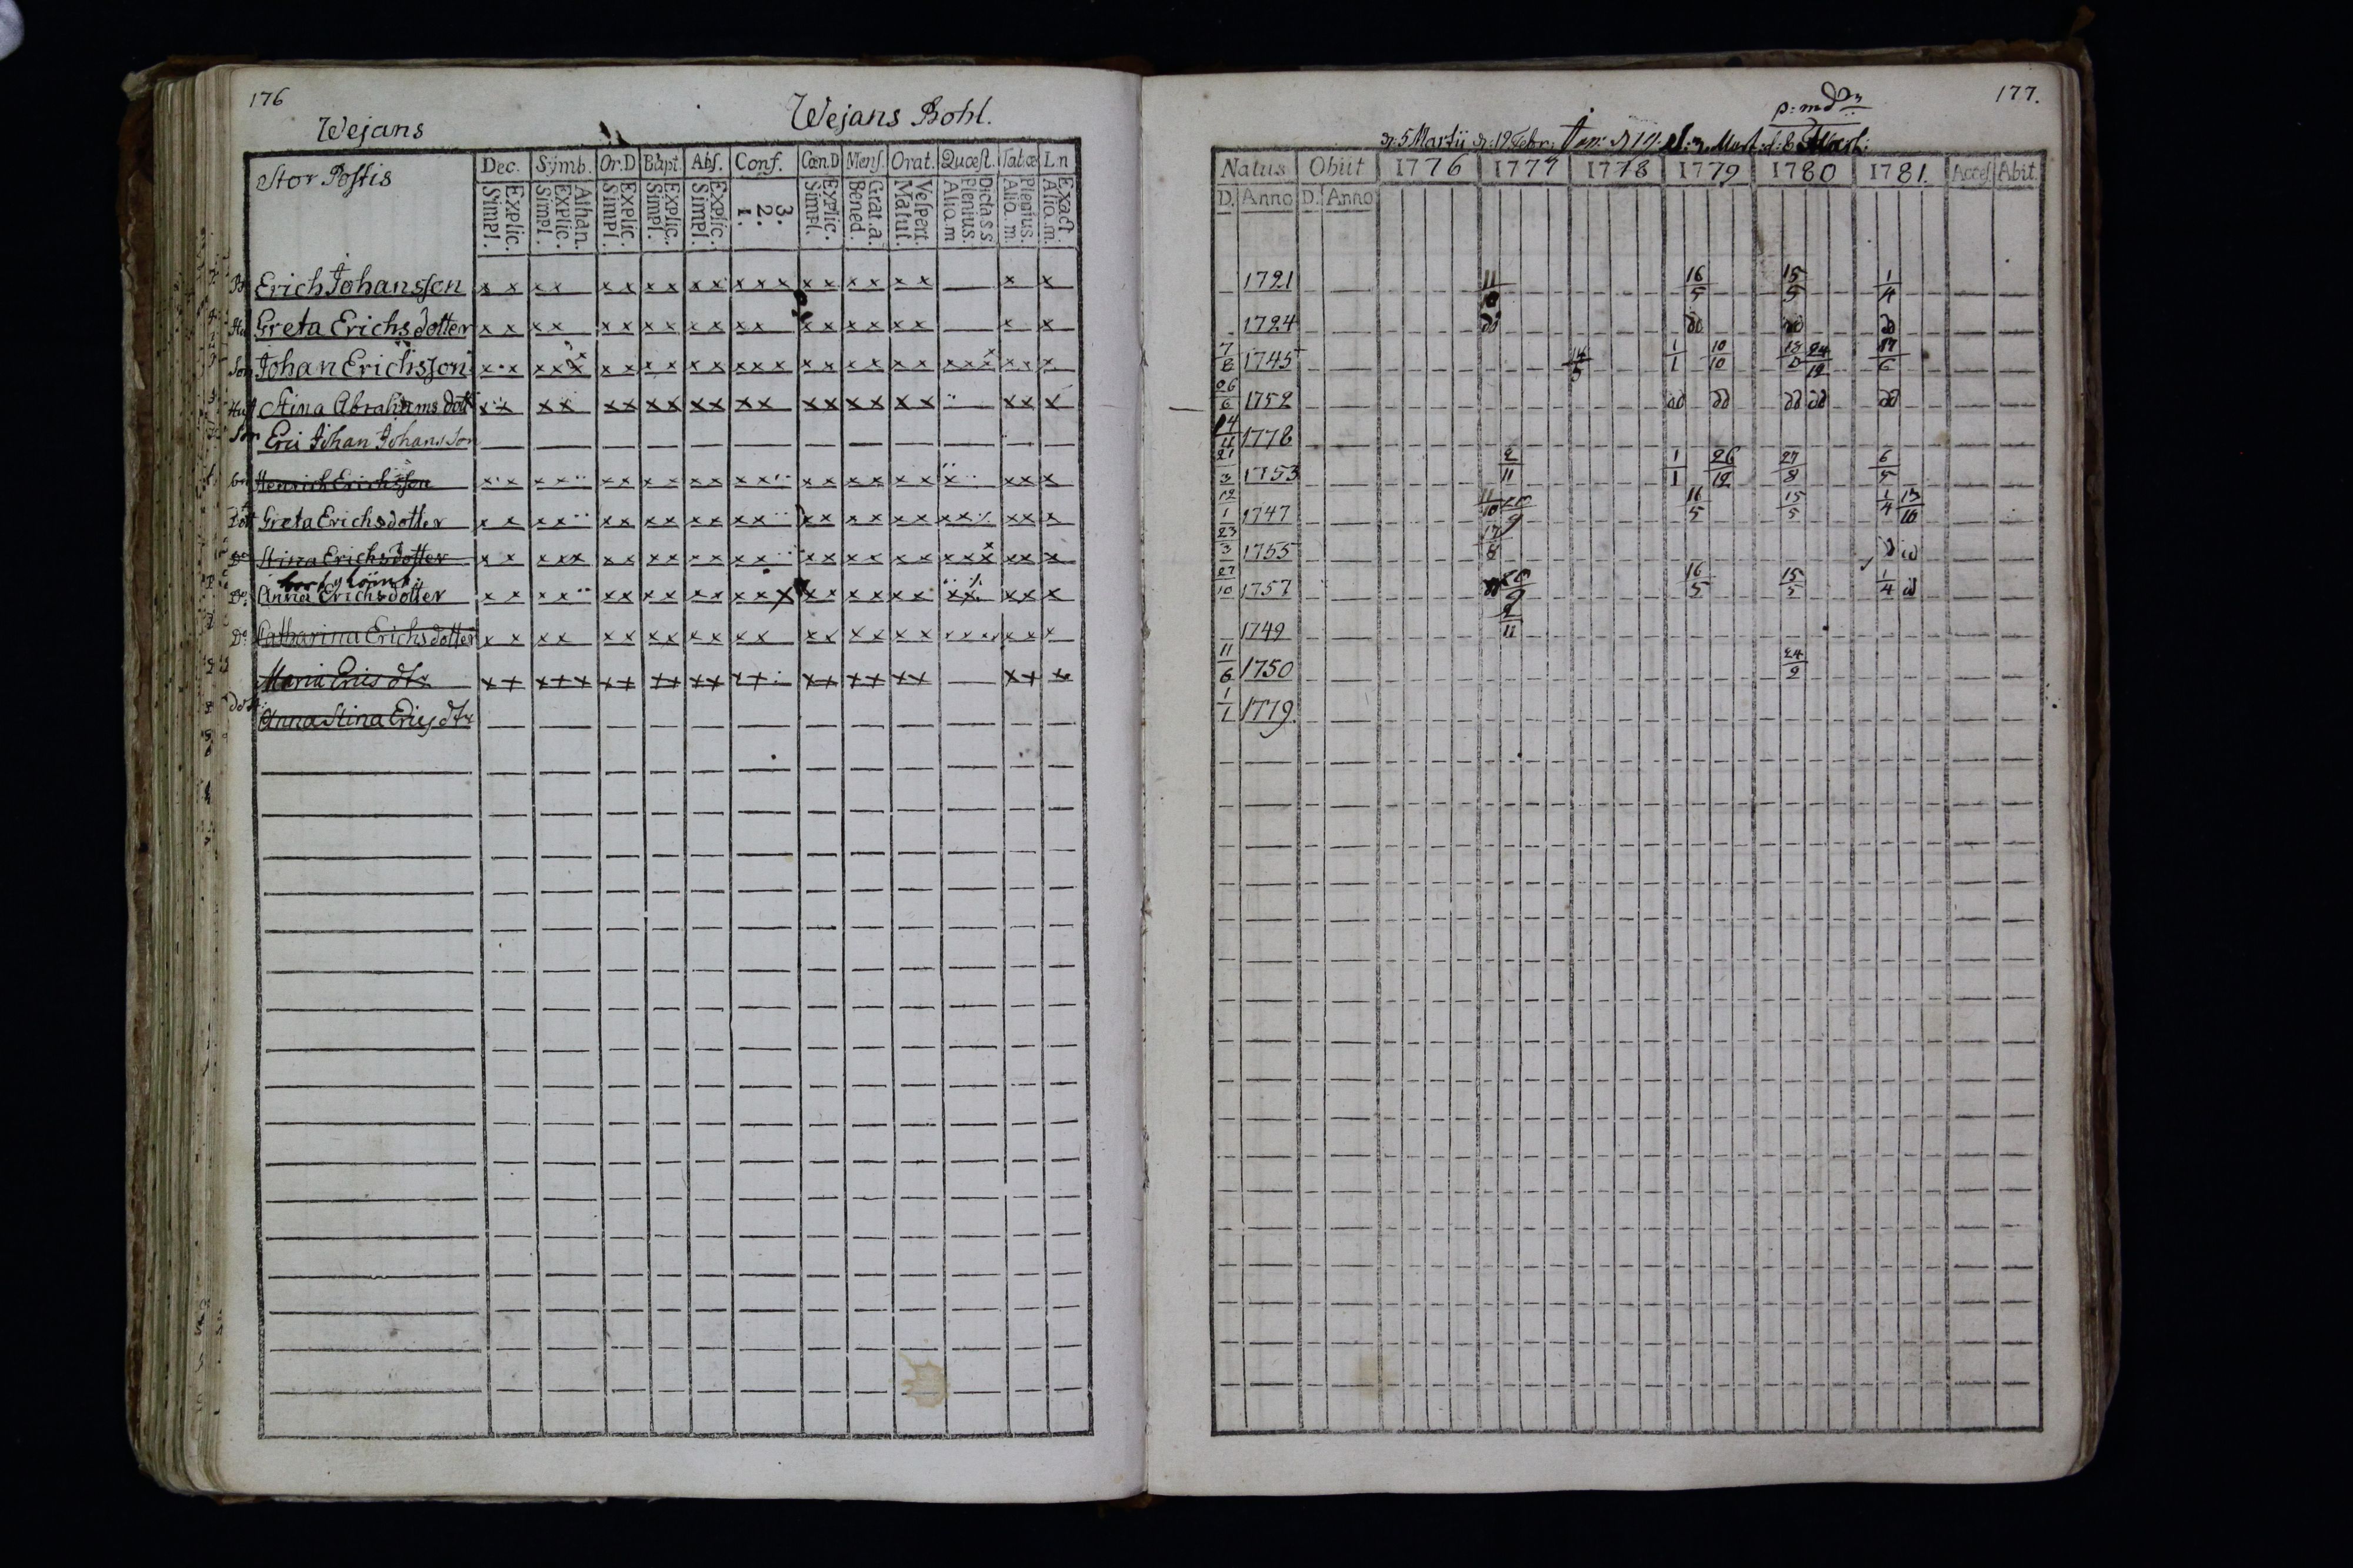 176
Wejans
Wejans Bohl.
Stor Postis
Dec. Symb. Or.D Bapt. Abs. Conf. Cœn.D Mens. Orat. Quœst. Tabœ L.n
Simpl. Explic. Simpl. Explic. Athan. Simpl. Explic. Simpl. Explic. Simpl. Explic. 1. 2. 3. Simpl. Explic. Bened. Grat.a. Matut. Vespert. Aliq.m Plenius. Dicta.s.s Aliq.m. Plenius. Aliq.m. Exact.
Erich Johansson x x x x x x x x x x x x x x x x x x x x x
Greta Erichsdotter x x x x x x x x x x x x x x x x x x x x
Son Johan Erichsson x x x x x x x x x x x x x x x x x x x x x x x x x x x
Hust Stina Abrahams dott x x x x x x x x x x x x x x x x x x x x x
Son Eric Johan Johansson
Henrich Erichsson x x x x x x x x x x x x x x x x x x x x x x
Dott Greta Erichsdotter x x x x x x x x x x x x x x x x x x x x x x x
Do Stina Erichsdotter x x x x x x x x x x x x x x x x x x x x x x x x x
Do. Anna Erichsdotter x x x x x x x x x x x x x x x x x x x x x x x x
Do. Catharina Erichsdotter x x x x x x x x x x x x x x x x x x x x x x x x x
Maria Erics dtr x x x x x x x x x x x x x x x x x x x x x x
Anna Stina Erics dtr
177.
5 Martii 19 Febr:
Natus Obiit 1776 1777 1778 1779 1780 1781. Acces Abit.
D. Anno D. Anno
1721 11/10 16/5 15/5 1/4
1724 do do do do
7/8 1745 14/5 1/1 10/10 18/8 24/12 17/6
26/6 1752 do do do do do
14/11 1778
21/3 1753 2/11 1/1 26/12 27/8 6/5
12/1 1747 11/10 16/5 15/5 1/4 13/10
23/3 1755 17/8
27/10 1757 16/5 15/5 1/4
1749 2/11
11/6 1750 24/9
1/1 1779.